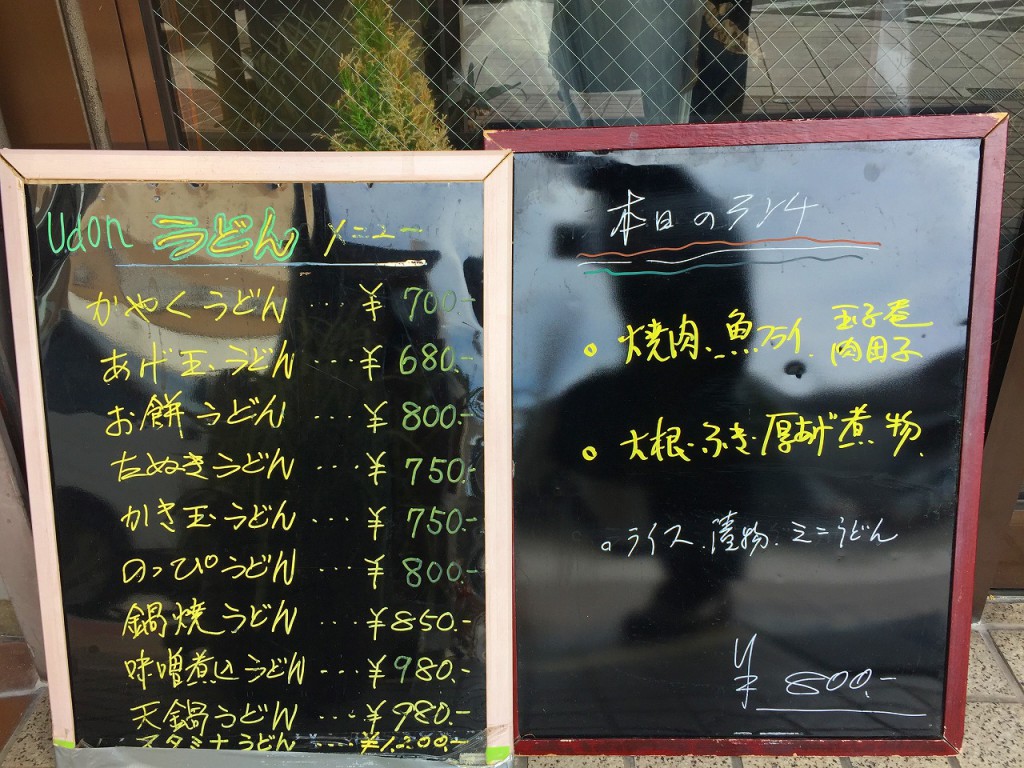 Udon うどん メニュー
かやくうどん ... ¥ 700.-
あげ玉うどん ... ¥ 680.-
お餅うどん ... ¥ 800.-
たぬきうどん ... ¥ 750.-
かき玉うどん ... ¥ 750.-
のっぴいうどん ... ¥ 800.-
鍋焼うどん ... ¥850.-
味噌煮込うどん ... ¥980.-
天鍋うどん ... ¥980.-
スタミナうどん ... ¥1,200.-
本日のランチ
。焼肉、魚フライ、玉子巻
肉団子
。大根・ふき・厚あげ煮物、
。ライス、漬物、ミニうどん
¥ 800.-